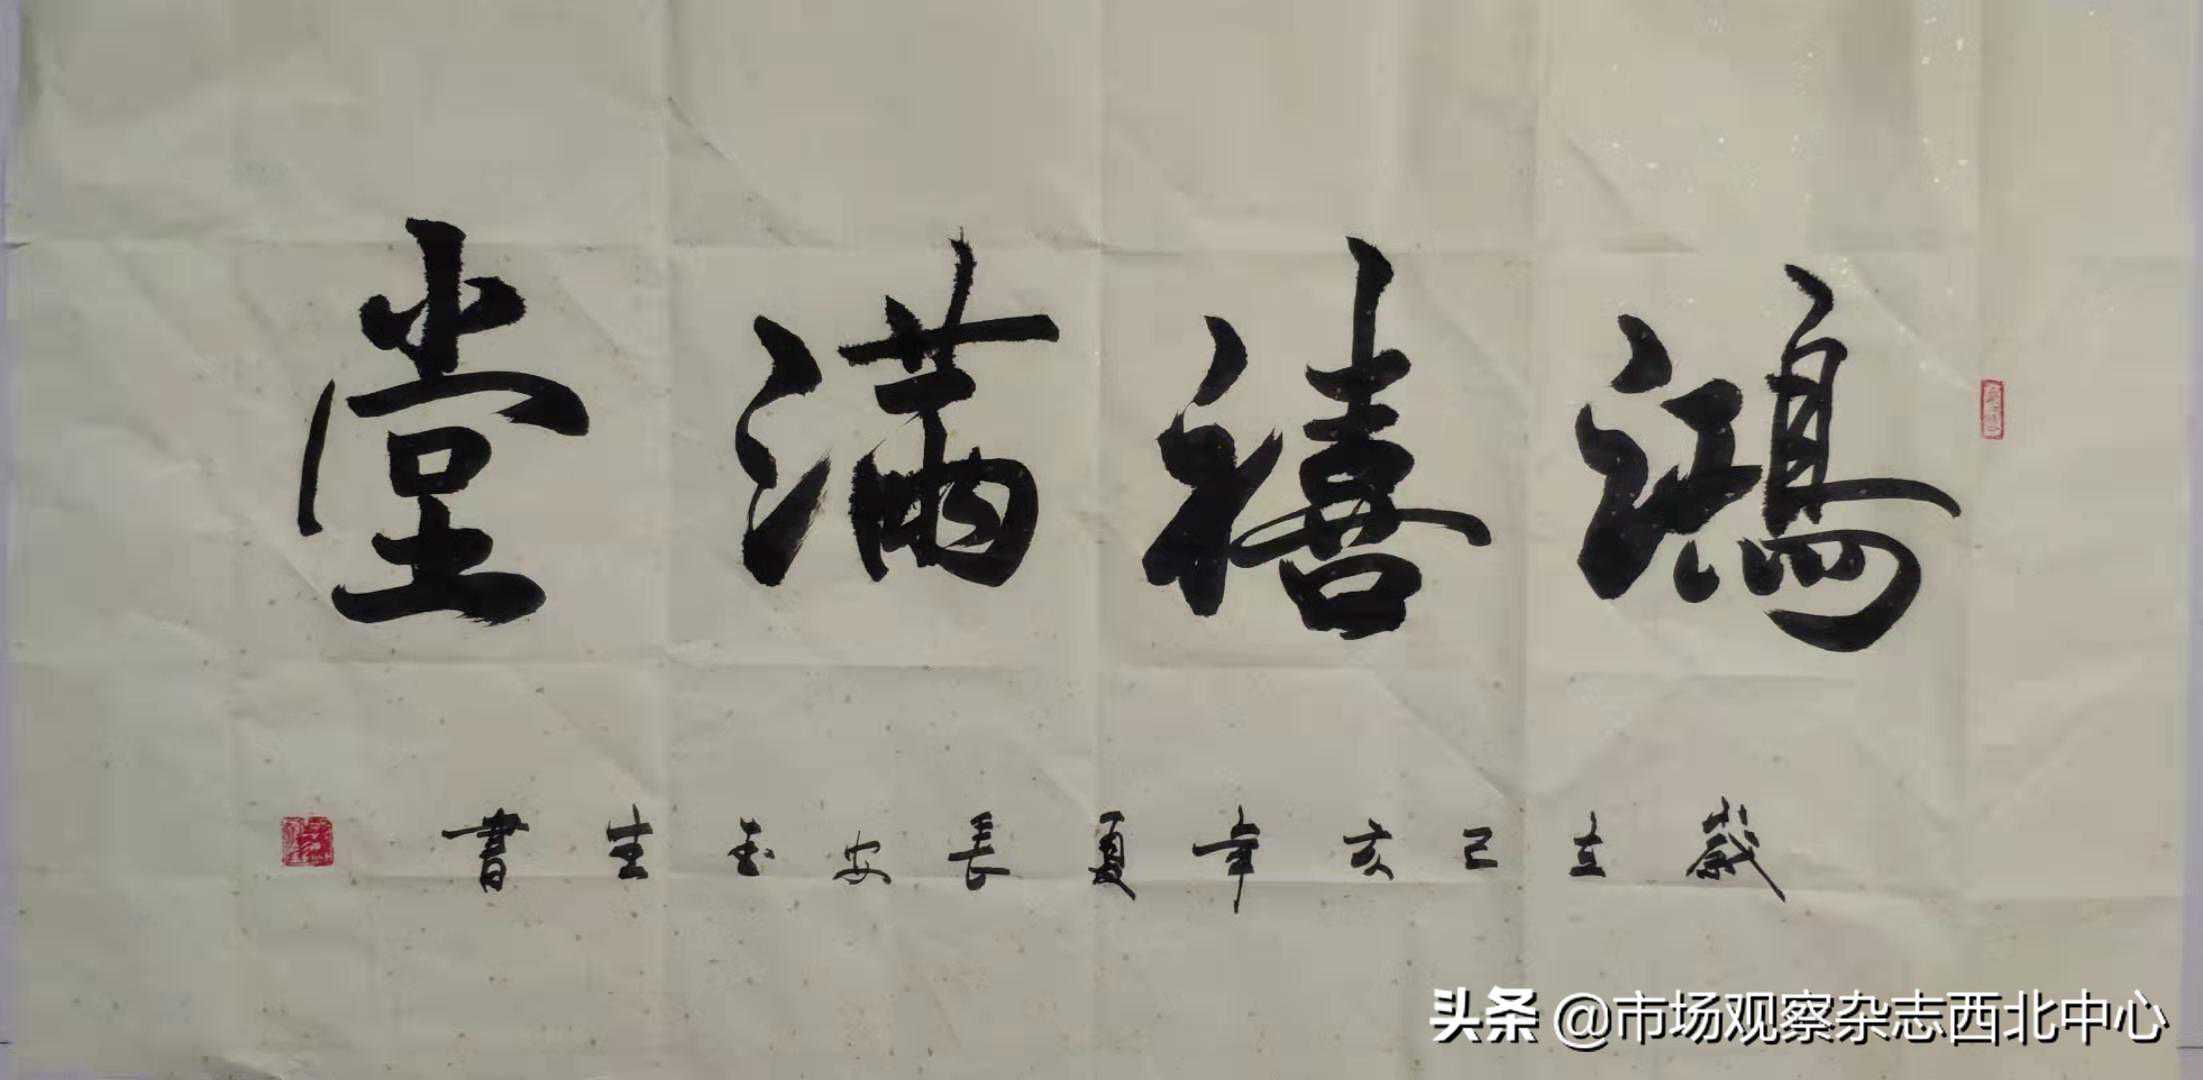 鴻禧滿堂
歲在己亥年夏長安玉生書
头条 @市场观察杂志西北中心